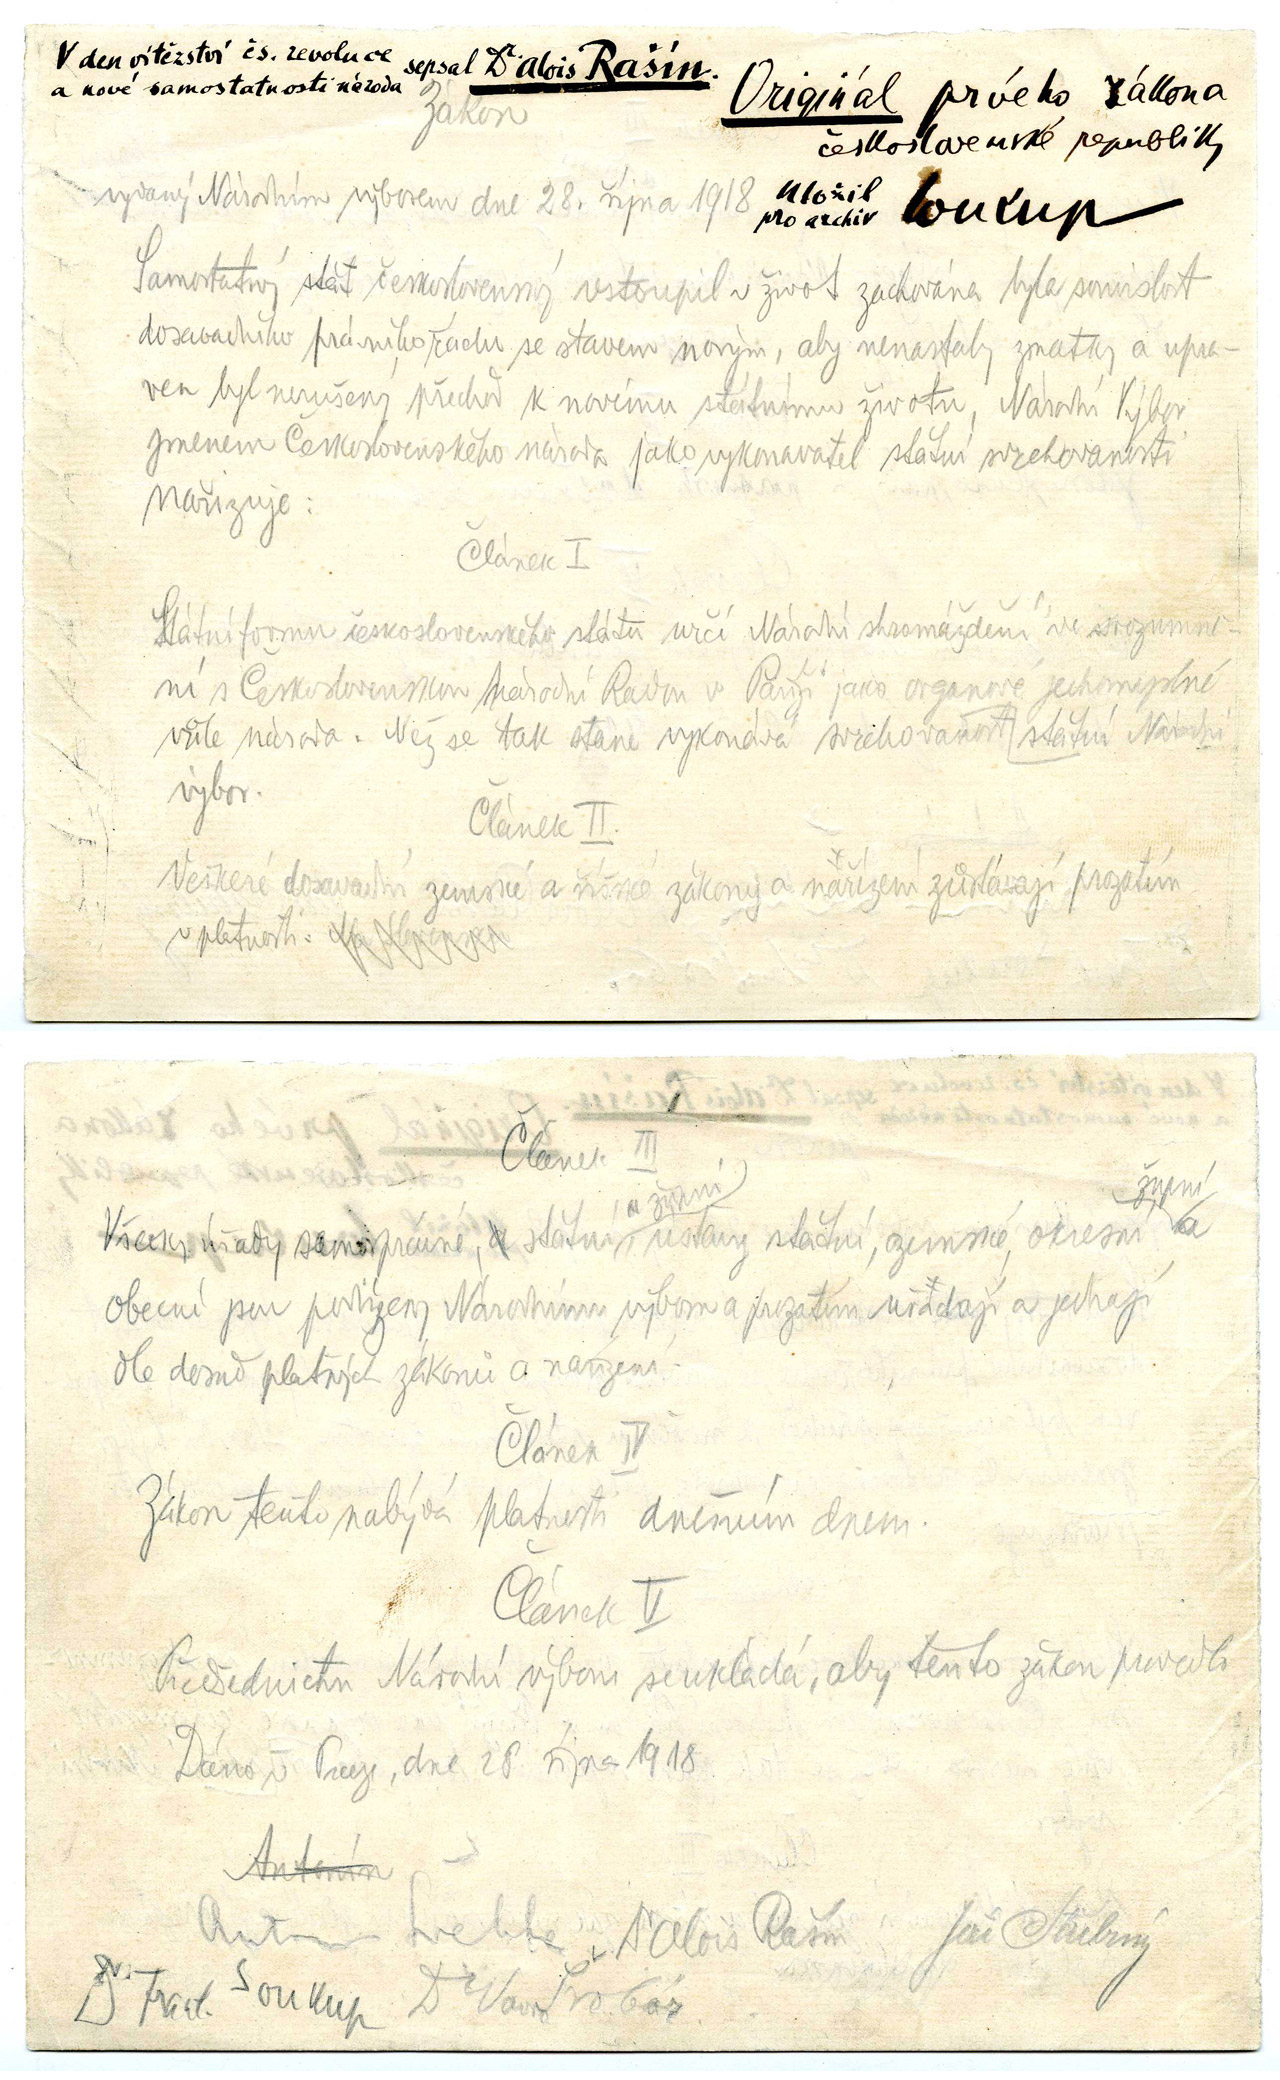 V den vítězství čs. revoluce
a nové samostatnosti národa
sepsal Dr Alois Rašín.
Originál prvého zákona
československé republiky
uložil
pro archiv
Soukup
Zákon
vydaný Národním výborem dne 28. října 1918
Samostatný stát československý vstoupil v život zachována byla souvislost
dosavadního právního řádu se stavem novým, aby nenastaly zmatky a upra-
ven byl nerušený přechod k novému státnímu životu, Národní Výbor
jmenem Československého národa jako vykonavatel státní svrchovanosti
nařizuje:
Článek I
Státní formu československého státu určí Národní shromáždění ve srozumně-
ní s Československou Národní Radou v Paříži jako organové jednomyslné
vůle národa. Než se tak stane vykonává svrchovanost státní Národní
výbor.
Článek II.
Veškeré dosavadní zemské a říšské zákony a nařízení zůstávají prozatím
v platnosti.
Článek III
Všecky úřady samosprávné, státní a župní, ústavy státní, zemské, okresní župní a
obecní jsou podřízeny Národnímu výboru a prozatím úřadají a jednají
dle dosud platných zákonů a nařízení.
Článek IV
Zákon tento nabývá platnosti dnešním dnem.
Článek V
Předsednictvu Národní výboru se ukládá, aby tento zákon provedlo
Dáno v Praze, dne 28 října 1918
Antonín
Antonín Švehla Dr Alois Rašín Jiří Stříbrný
Dr. Frant. Soukup Dr Vavro Šrobár